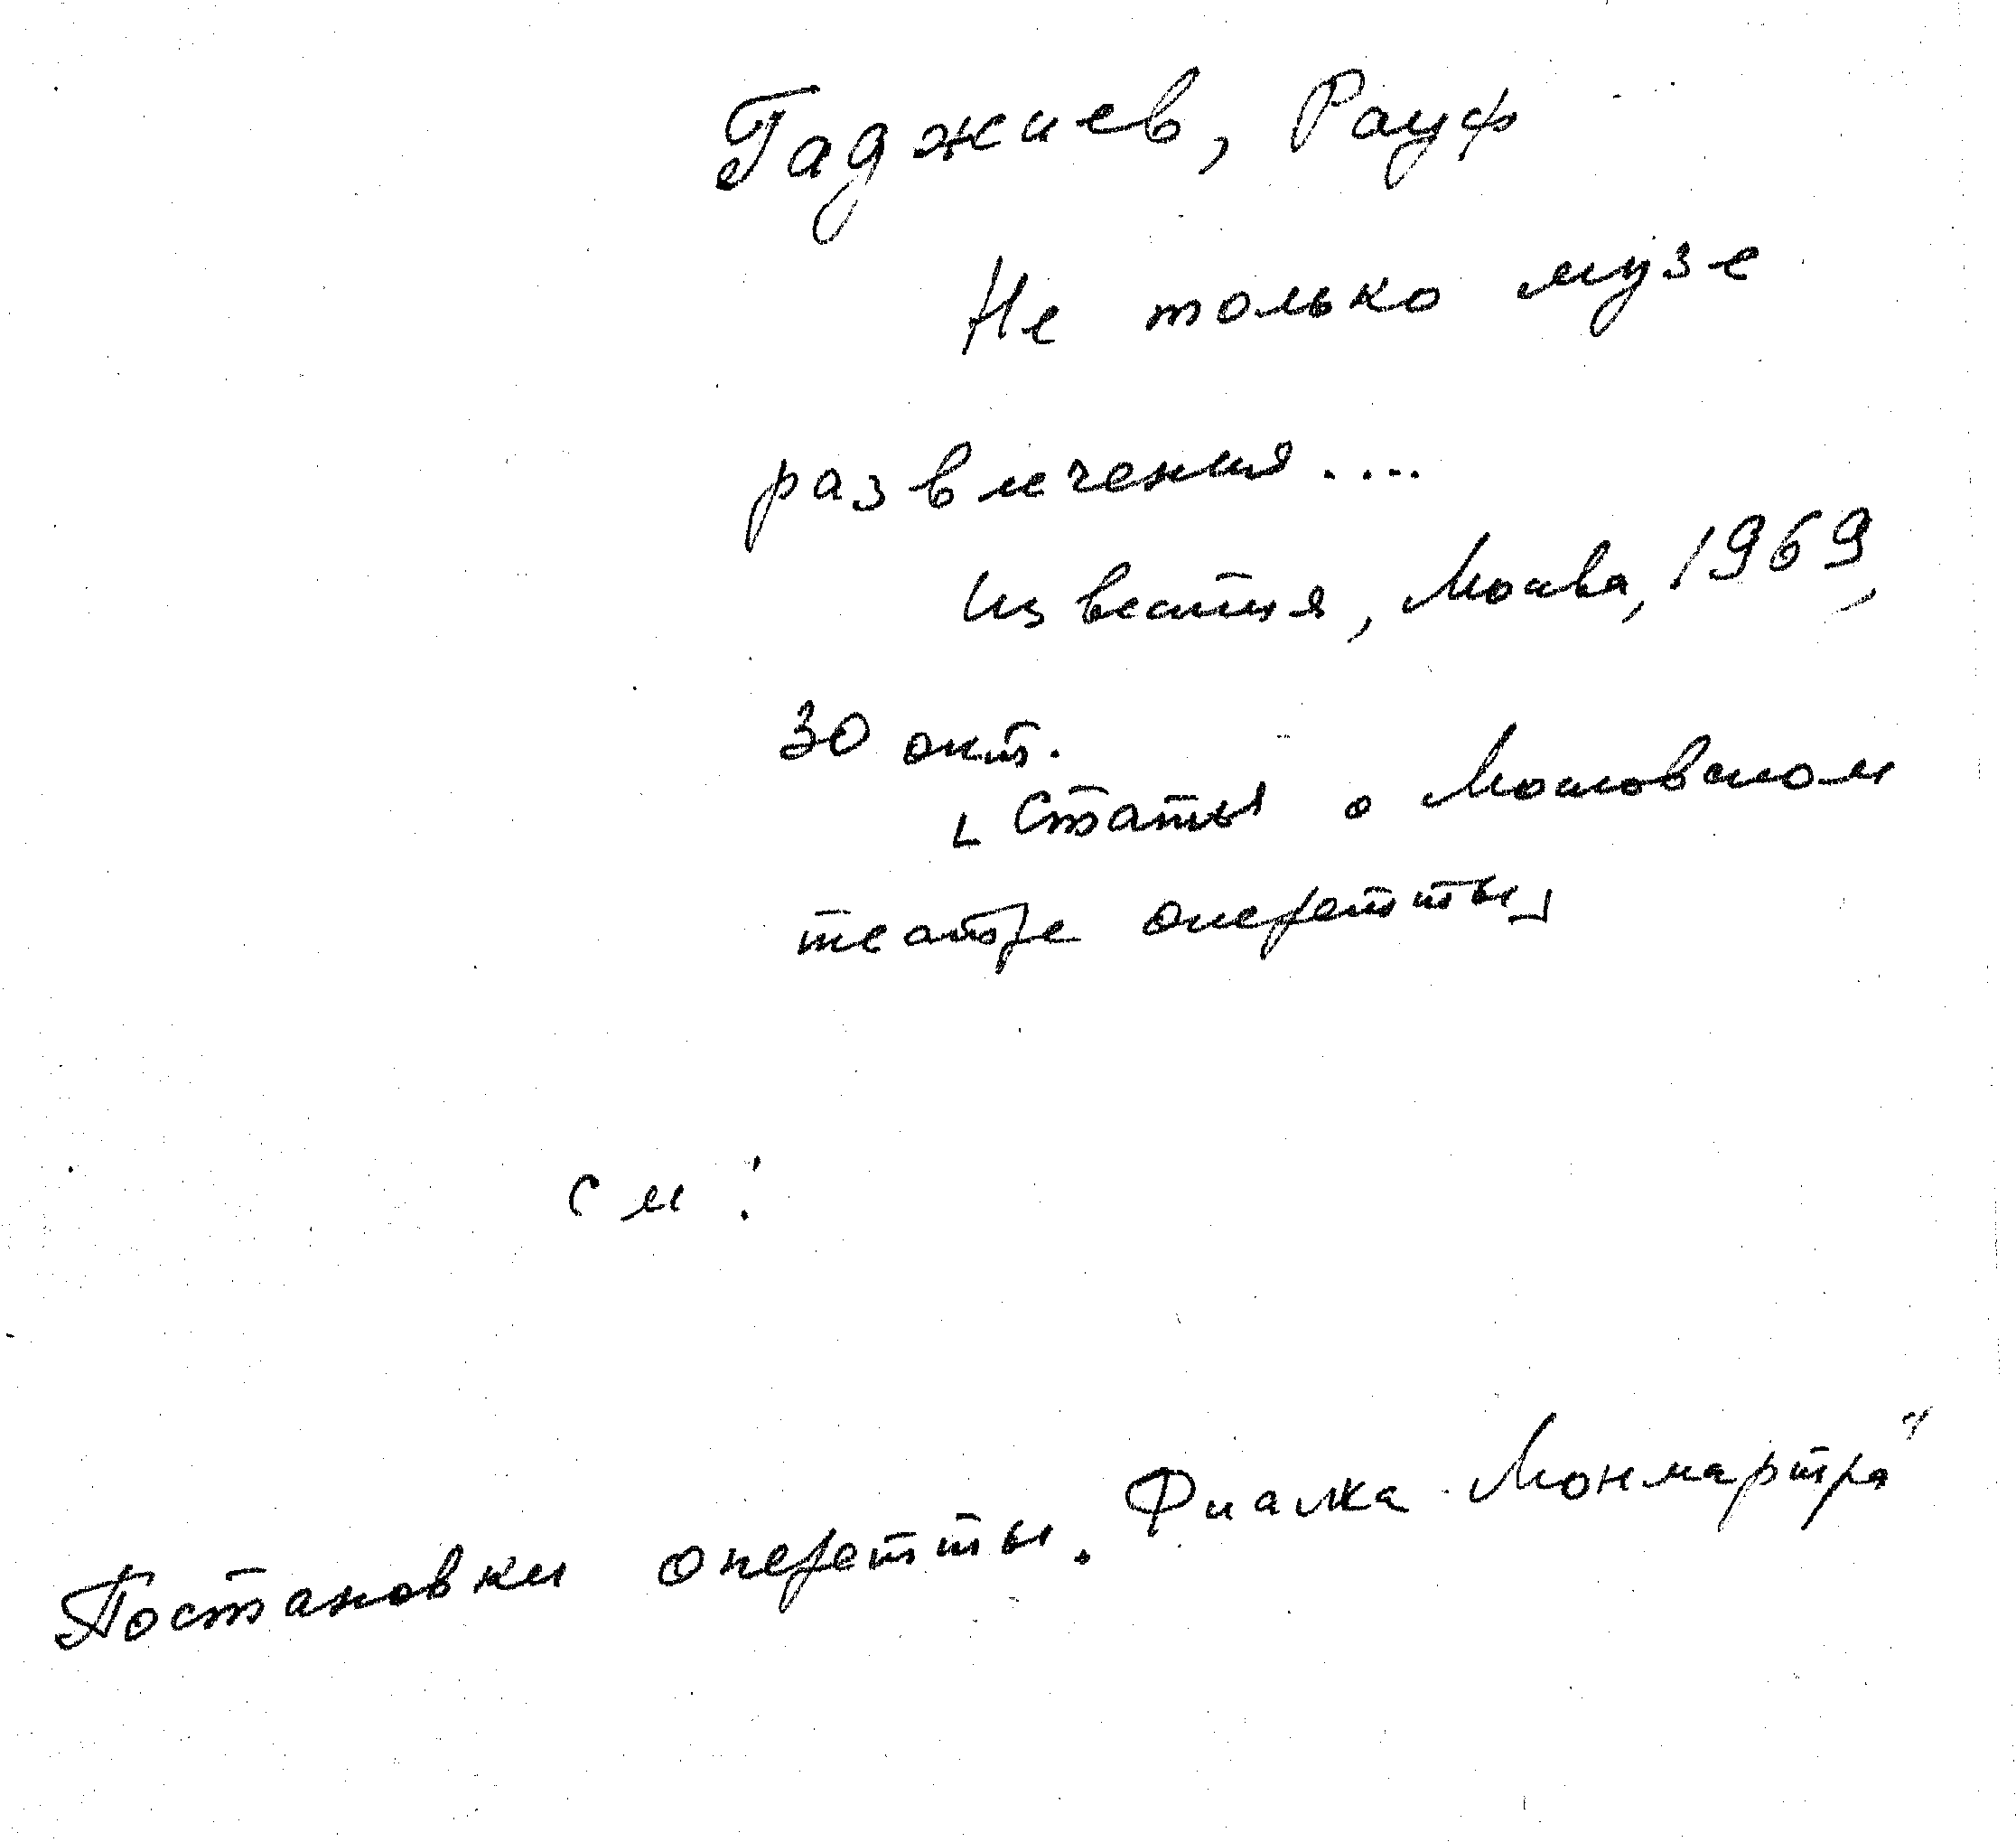 Гаджиев, Рауф
Не только музе
развлечения....
Известия, Москва, 1969,
30 окт.
[Статья о Московском
театре оперетты]
см:
Постановки оперетты. Фиалка Монмартра"